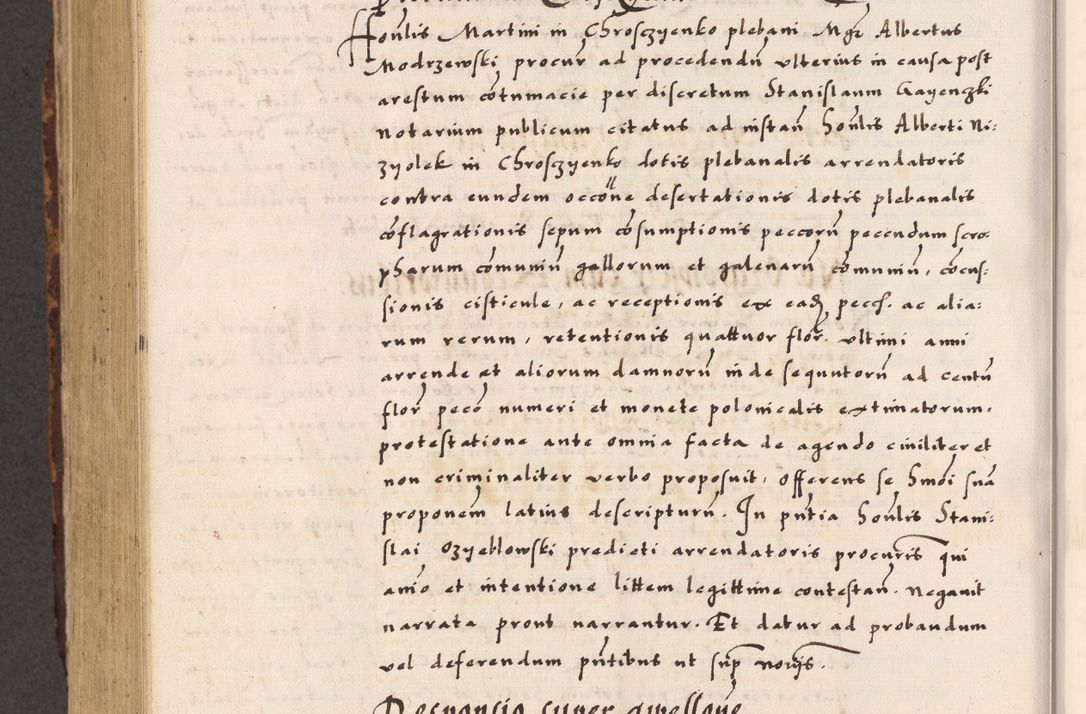 Honlis Martini in Chrosczyenko plebani Mgr Albertus
Modrzewski procur ad procedendu ulterius in causa post
arestum cotumacie per discretum Stanislaum Gayenczki
notarium publicum citatus ad instan Honlis Alberti Ni:
zyolek in Chrosczyenko dotis plebanalis arrendatoris
contra eundem occone desertationis dotis plebanalis
coflagrationis sepum cosumptionis peccoru pecudum scro:
pharum comuniu gallorum et galenaru comuniu, cocus:
sionis cisticule, ac receptionis ex ead pecc. ac alia:
rum rerum, retentionis quattuor flor. ultimi anni
arrende et aliorum damnoru inde sequutoru ad centu
flor peco numeri et monete polonicalis extimatorum,
protestatione ante omnia facta de agendo civiliter et
non criminaliter verbo proposuit, offerens se hmoi sua
proponem latius descripturu. In pntia Honlis Stani:
slai Ozyeblowski predicti arrendatoris procuris qui
anio et intentione littem legittime contestan. negavit
narrata prout narrantur. Et datur ad probandum
vel deferendum pntibus ut sup noris.
Responsio super appellone